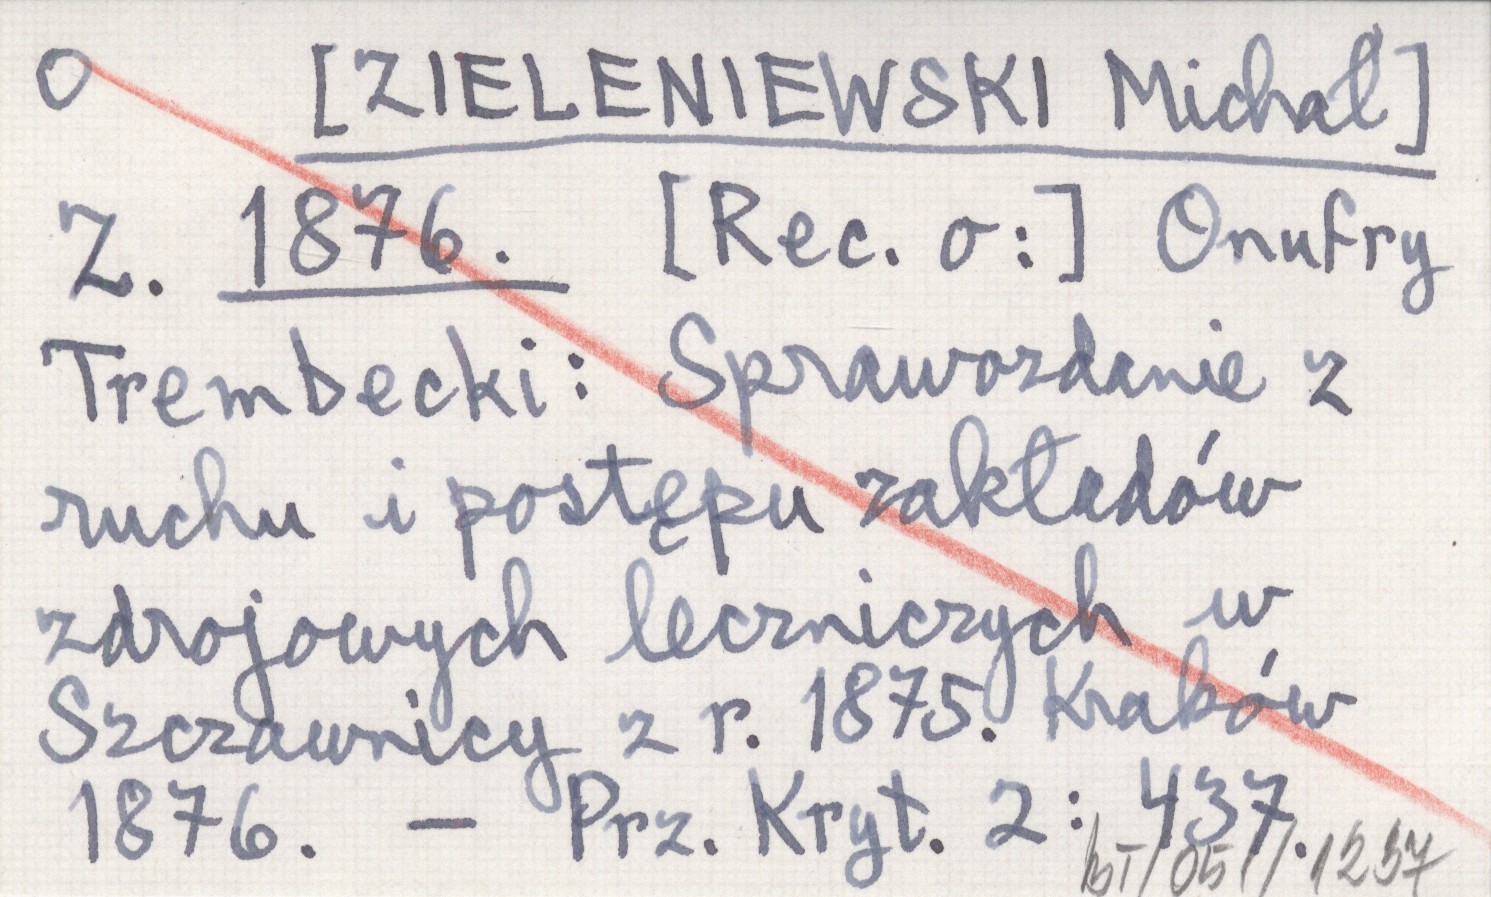 O [ZIELENIEWSKI Michał]
Z. 1876. [Rec. o:] Onufry
Trembecki: Sprawozdanie z
ruchu i postępu zakładów
zdrojowych leczniczych w
Szczawnicy z r. 1875. Kraków
1876. — Prz. Kryt. 2: 437.